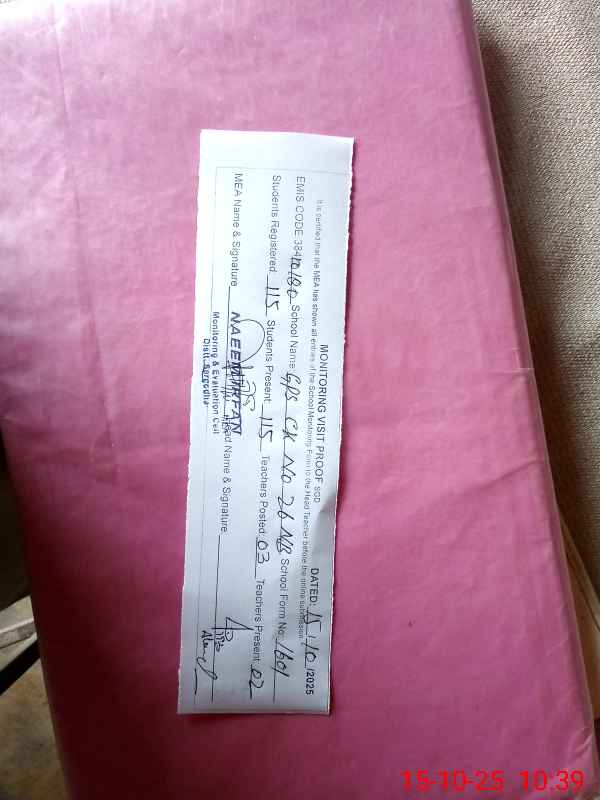 MONITORING VISIT PROOF SGD DATED: 15/10/2025
It is certified that the MEA has shown all entries of the School Monitoring Form to the Head Teacher before the online submission.
EMIS CODE 38410180 School Name: GPS CK No 26 NB School Form No: 1601
Students Registered: 115 Students Present: 115 Teachers Posted: 03 Teachers Present: 02
MEA Name & Signature: NAEEM IRFAN Head Name & Signature:
Monitoring & Evaluation Cell
Distt Sargodha
15-10-25 10:39